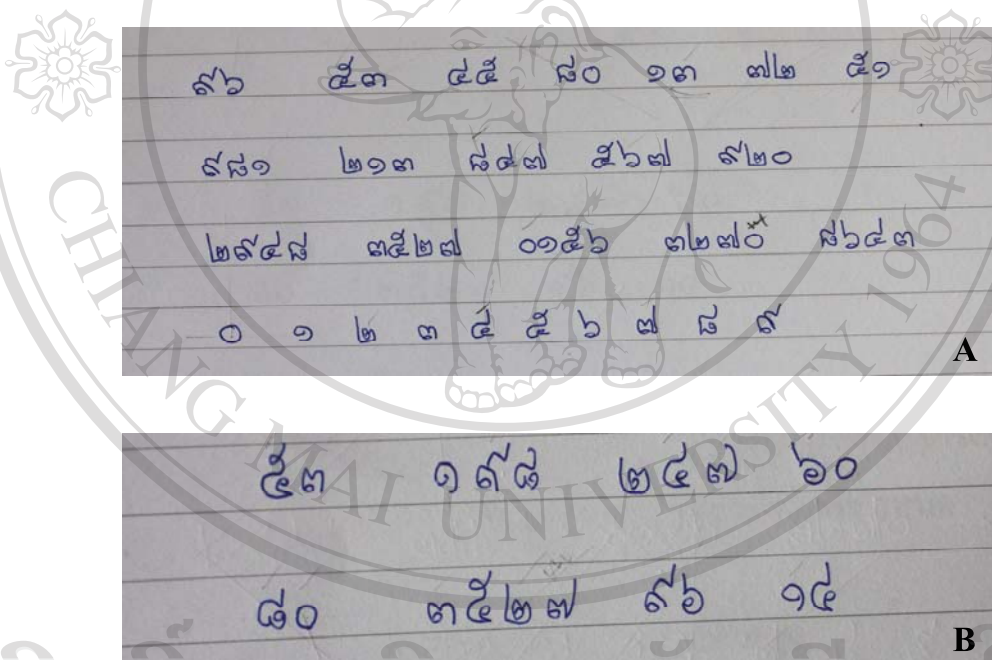 ๙๖ ๕๓ ๔๕ ๘๐ ๑๓ ๗๒ ๕๑
๙๘๑ ๒๑๓ ๘๔๗ ๕๖๗ ๙๒๐
๒๙๔๘ ๓๕๒๗ ๐๑๕๖ ๓๒๗๐ ๘๖๔๓
๐ ๑ ๒ ๓ ๔ ๕ ๖ ๗ ๘ ๙
A
๕๓ ๑๙๘ ๒๔๗ ๖๐
๘๐ ๓๕๒๗ ๙๖ ๑๔
B
CHIANG MAI UNIVERSITY 1964